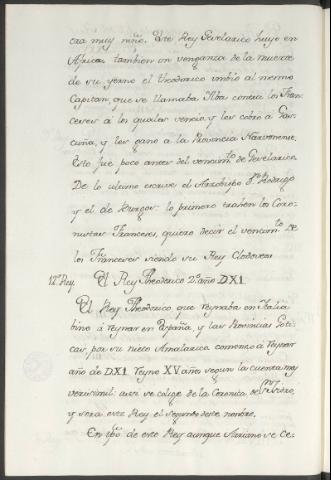 era muy niño. Este Rey Geselarico huyo en
Africa. tambien en venganza de la muerte
de su yerno el theodorico embio al mesmo
Capitan, que se llamaba Ilba contra los Fran-
ceses á los quales vencio y les cobró a Gas-
cuña, y les ganó a la Provincia Narvonense.
Esto fue poco antes del vencimto. de Geselarico.
De lo ultimo escrive el Arzobispo Dn. Rodrigo
y el de Burgos: lo primero trahen los Coro-
nistas Franceses, quiero decir el vencimto. de
los Franceses siendo su Rey Clodoveo
12º Rey. El Rey Theodorico 2º. año DXI.
El Rey Theodorico que reynaba en Italia
bino á reynar en España, y las Provincias Goti-
cas, por su nieto Amalarico comenzó a reynar
año de DXI. Reyno XV años segun la cuenta mas
verisimil: assi se colige de la Coronica de Sn. Isidro,
y sera este Rey el segundo deste nombre.
En tpo. de este Rey aunque Arriano se ce-